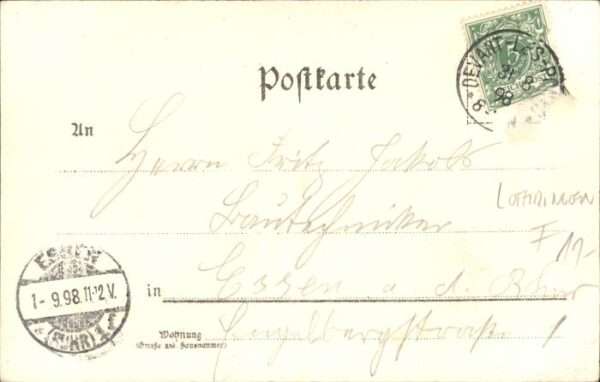 DEVANT-LES-P
31 8
98
Postkarte
An
Herrn Fritz Jakobs
Bautechniker
LOTHRINGEN
F 11-
ESSEN
1- 9.98.11-12V.
(RUHR) 1
in Essen a. d. Ruhr
Wohnung
(Straße und Hausnummer)
Engelbergstrasse 1